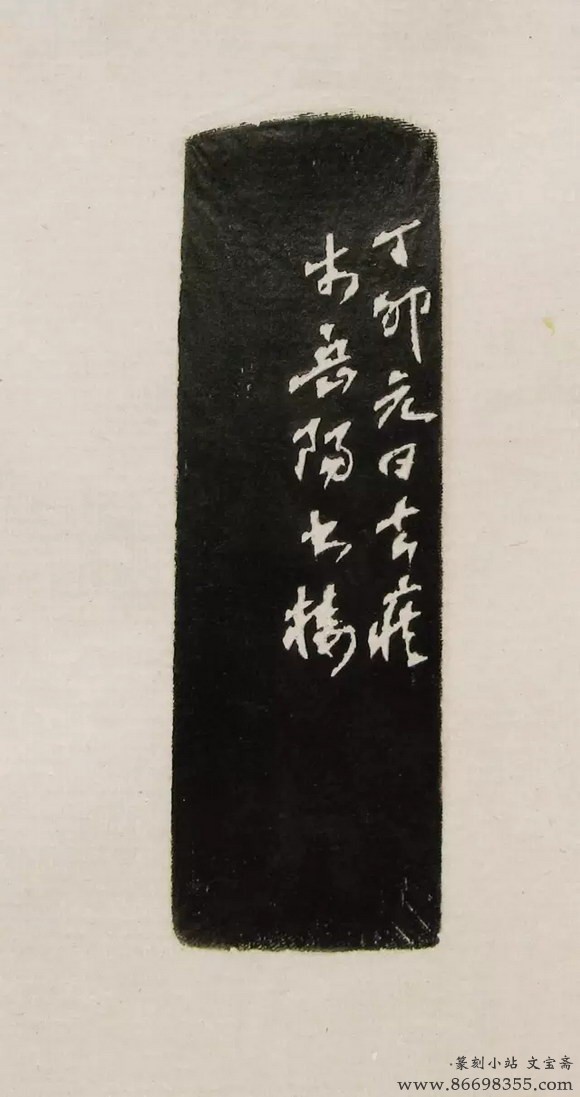 丁卯元日去疾
岳陽楼
·篆刻小站 文宝斋
www.86698355.com